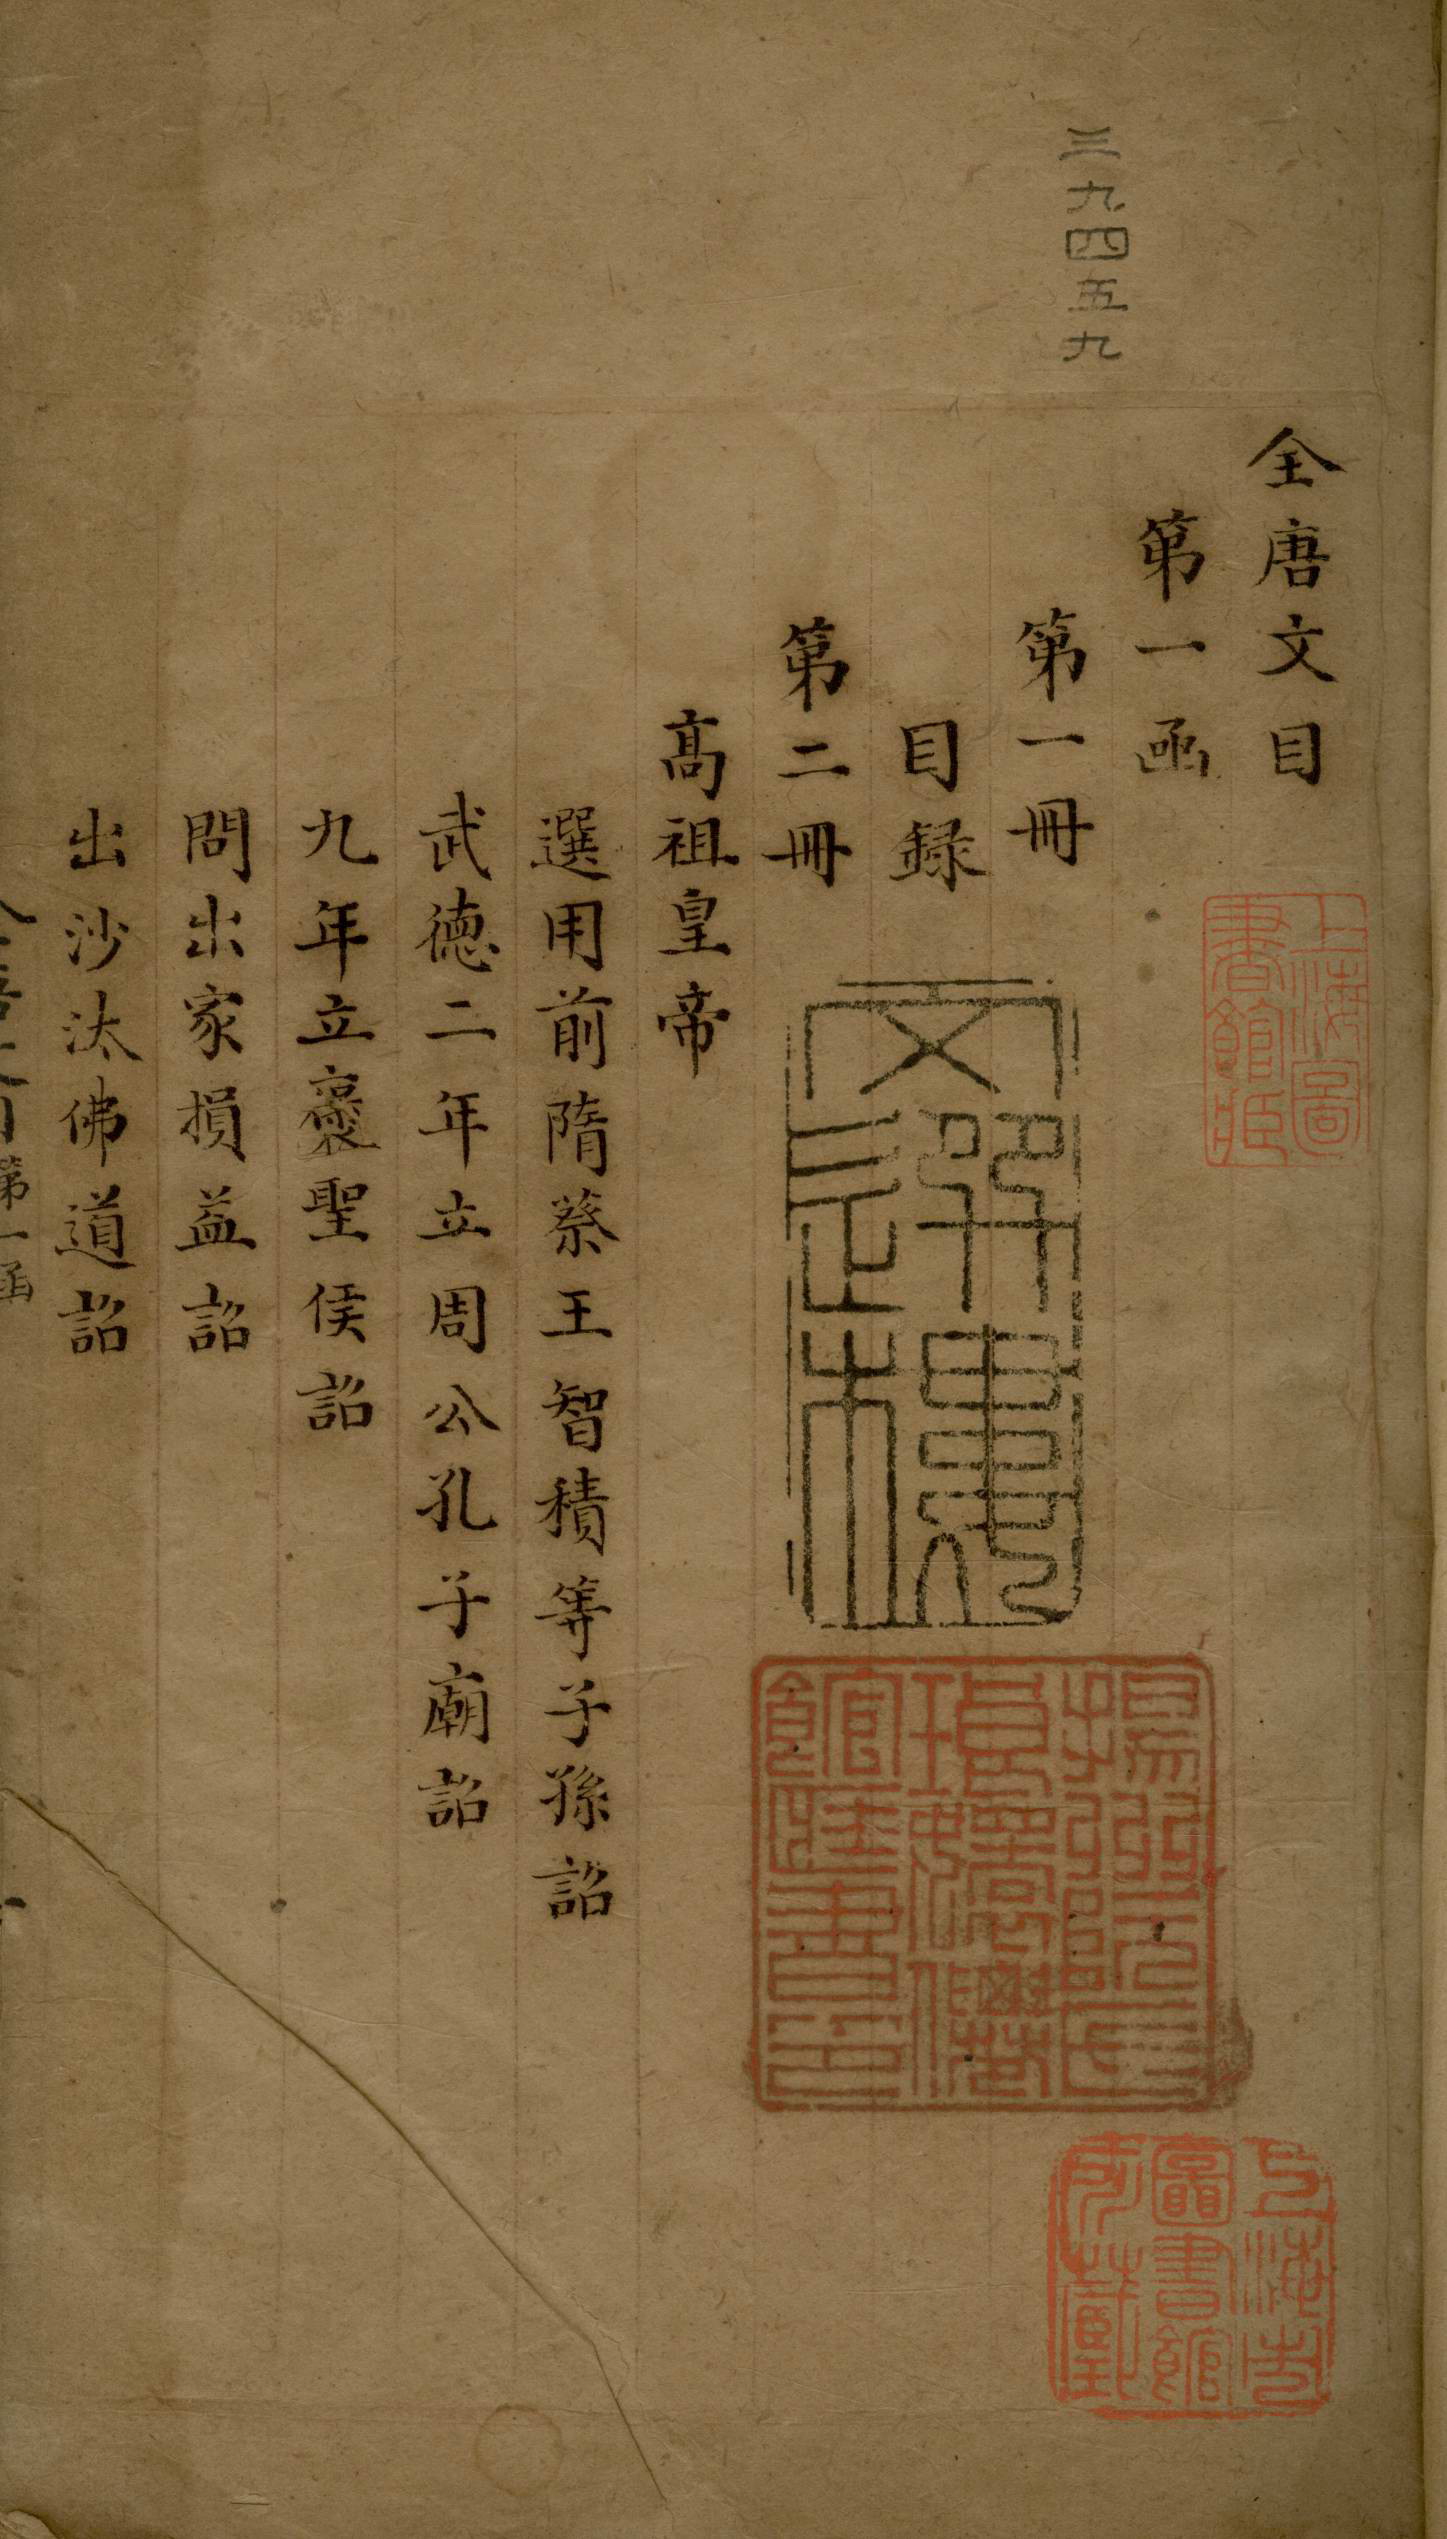 三九四五九
全唐文目
第一函
第一冊
目録
第二冊
高祖皇帝
選用前隋蔡王智積等子孫詔
武德二年立周公孔子廟詔
九年立襃聖侯詔
問出家損益詔
出沙汰佛道詔
第一函
上海圖
書館臧
上海市
圖書館
所藏